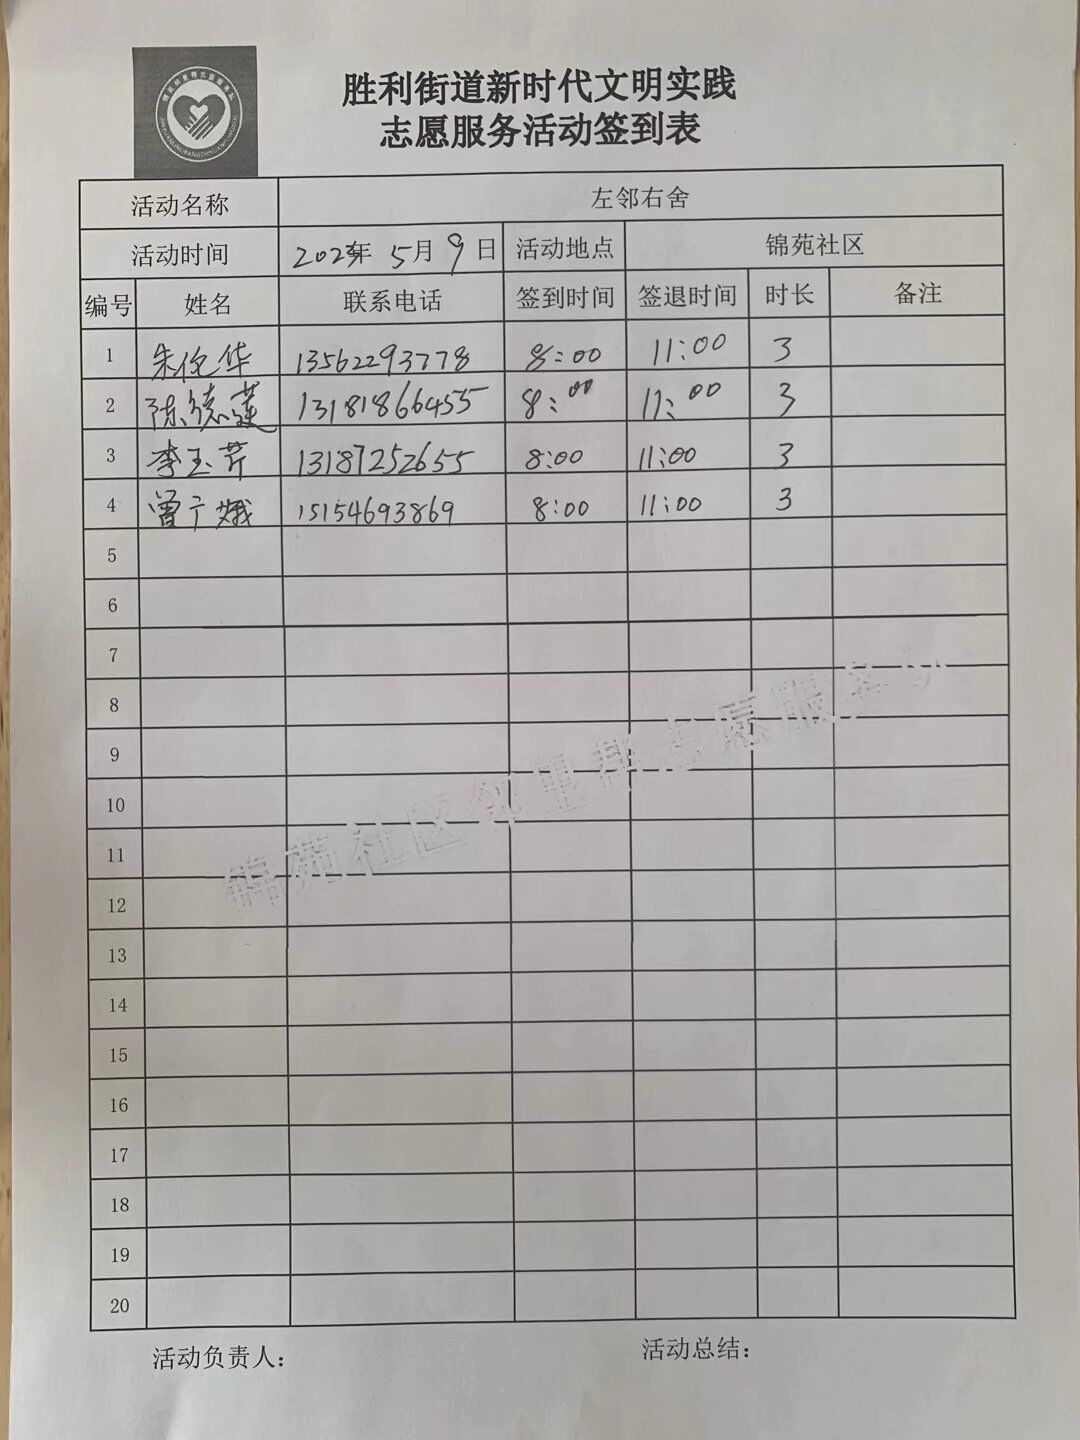 胜利街道新时代文明实践
志愿服务活动签到表
活动名称 左邻右舍
活动时间 2023年 5月 9日 活动地点 锦苑社区
编号 姓名 联系电话 签到时间 签退时间 时长 备注
1 朱俊华 13562293778 8:00 11:00 3
2 陈德莲 13181866455 8:00 11:00 3
3 李玉芹 13187252655 8:00 11:00 3
4 曾广娥 15154693869 8:00 11:00 3
5
6
7
8
9
10
11
12
13
14
15
16
17
18
19
20
锦苑社区邻里帮志愿服务队
活动负责人： 活动总结：